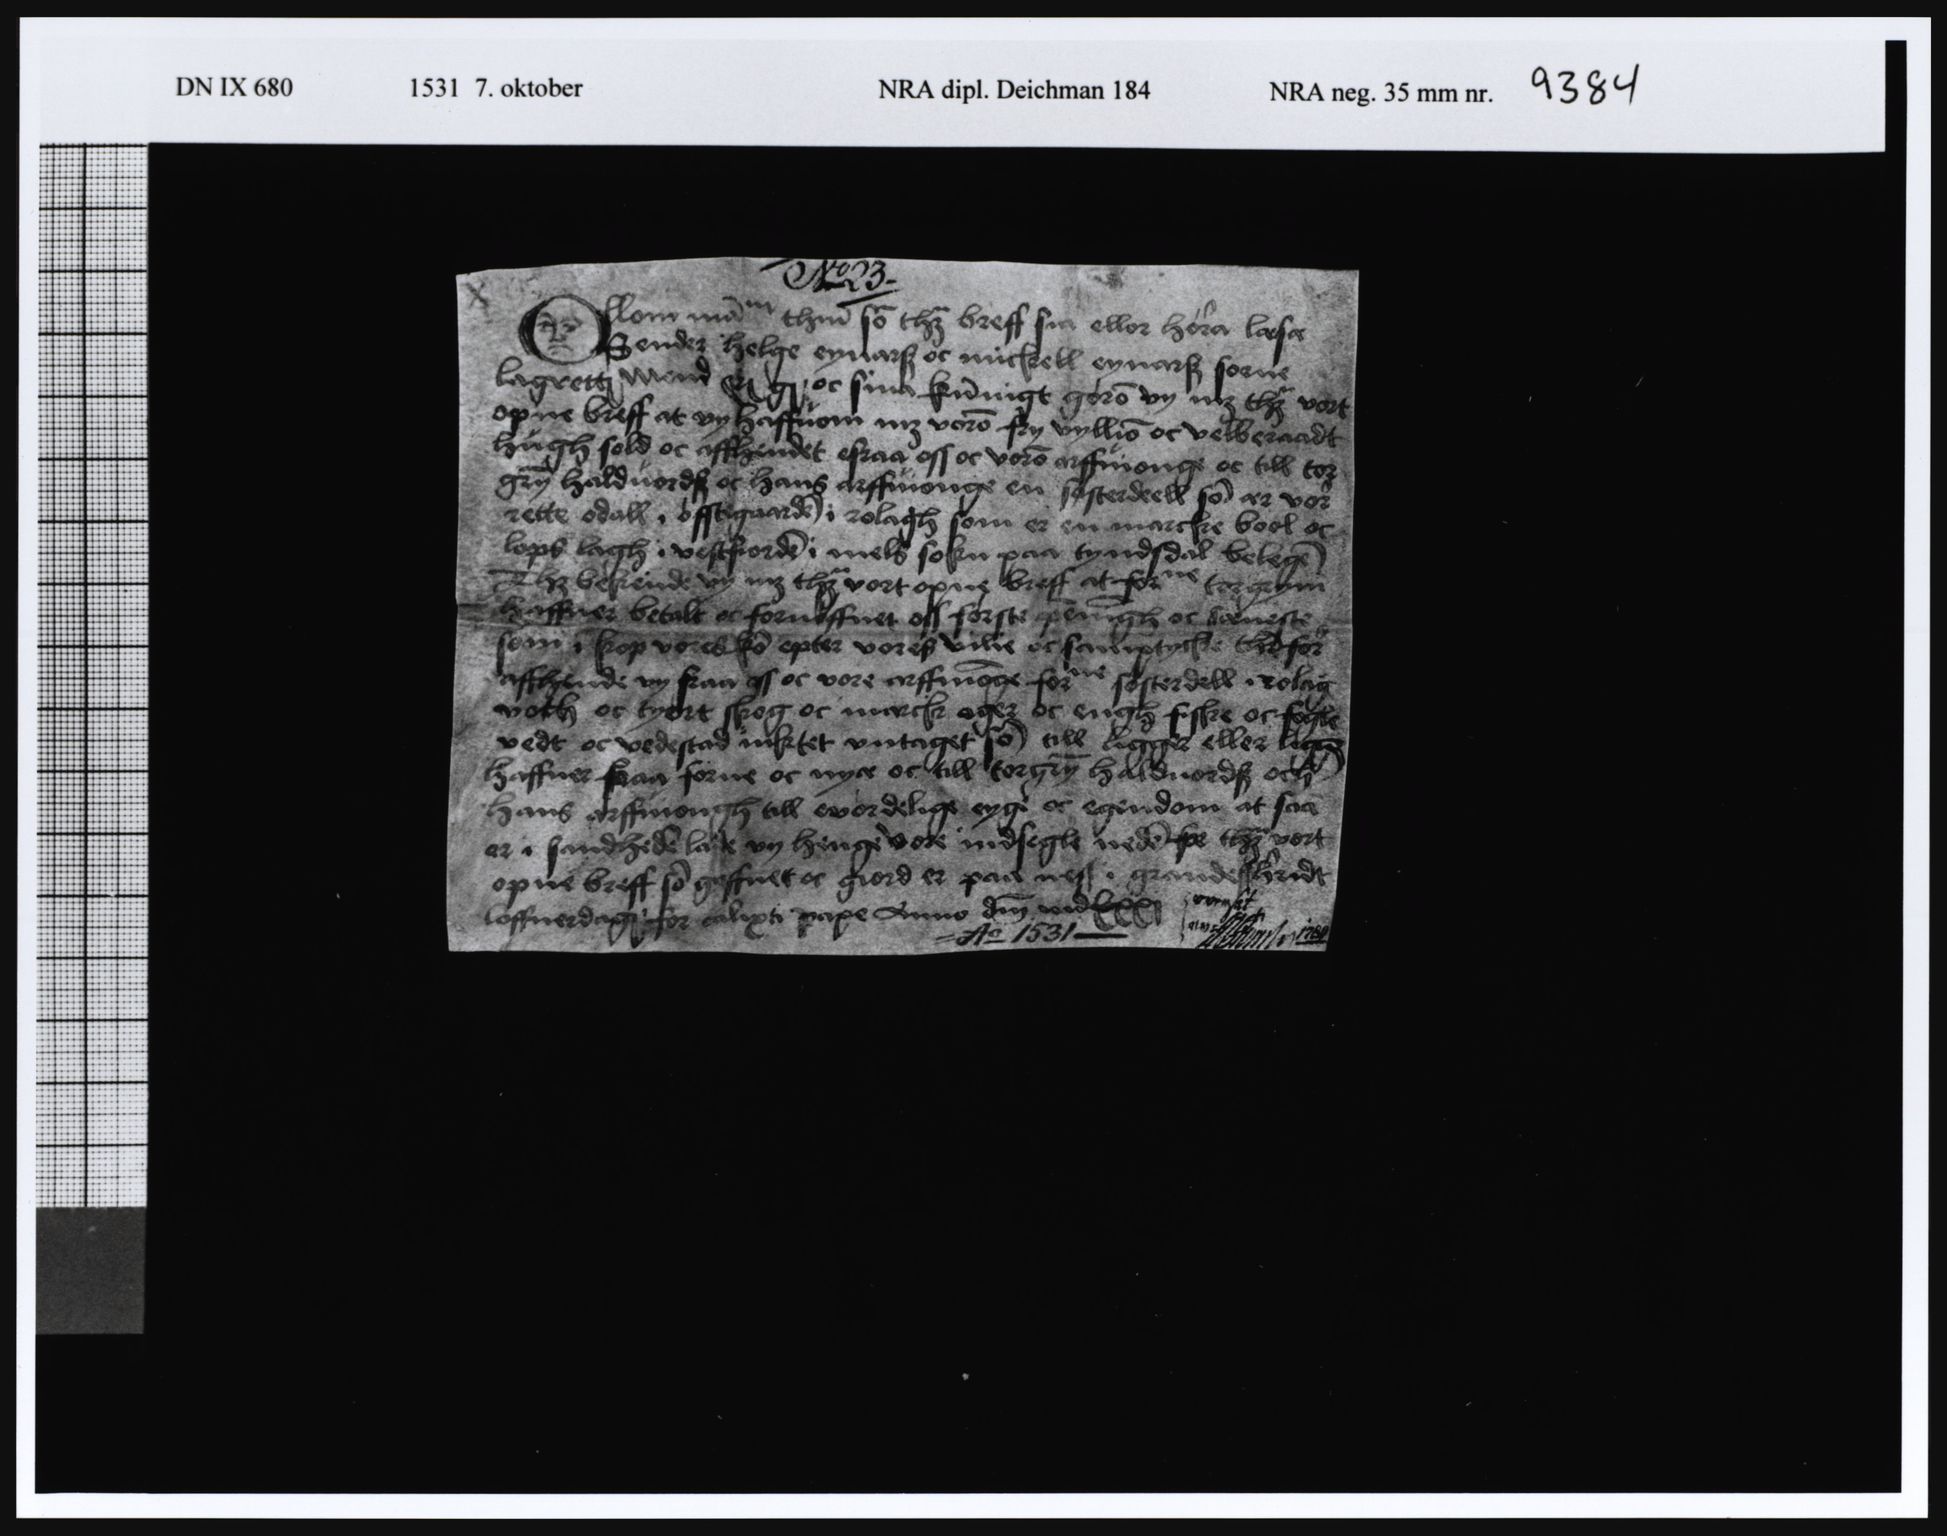 DN IX 680 1531 7. oktober NRA dipl. Deichman 184 NRA neg. 35 mm nr. 9384
No 23.
Ollom thm̄ sō thꝫ breff sia ellor hóra læsæ
Sender helge eynarß oc mickell eynarß sorne
lagrettꝫ mend oc sina kūnigt gorō vy mꝫ thꝫ vort
opne breff at vy haffuom mꝫ vorō fry vylliō oc velberaadt
hugh sold oc affhendet fraa oss oc vorō arffuonge oc till tor
grȳ halduordß oc hans arffuonge en sosterdeell sō ær vor
rette odall i offstegaardē i rolagh som er en marcke bool oc
lops lagh i vestfiordē i mels sokn paa tyndsdal belegē
Thꝫ bekende vy mꝫ thꝫ vort opne breff at forne torgrym
haffuer betalt oc fornoffuet oss forste pēningh oc seneste
som i kop vores kō epter vores vilie oc samptycke thꝫ for
affhende vy fraa oss oc vore arffuōge forne sosterdell i rolag
voth oc tyort skog oc marck ager oc engh fiske oc fogle
vedt oc vedestad inktet vntaget sō till ligger eller ligget
haffuer fraa forne oc nyæ oc till torgrȳ halduordß och
hans arffuongh till evordelige eyge oc egendom at saa
er i sandhedē lade vy henge vore indsegle nedē for thꝫ vort
opne breff sō geffuet oc giord er paa ness i grandeshęridt
loffuerdagē for calixti pape Anno dm̄ mdxxxi
= Ao 1531 —